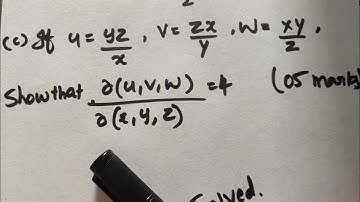 (c) If u = yz/x , v = zx/y , w = xy/z ,
Show that ∂(u,v,w)/∂(x,y,z) = 4 (05 marks)
Solved.